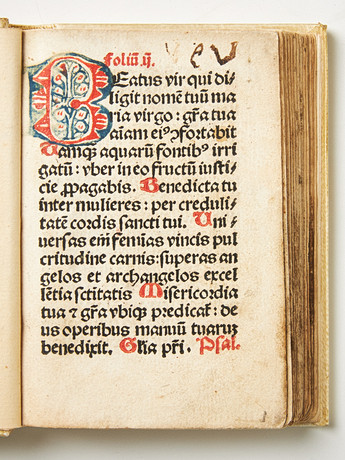 foliū. ij.
Beatus vir qui di⸗
ligit nomē tuū ma
ria virgo: gr̄a tua
aīam eiꝰ ꝯfortabit
Tamqꝫ aquarū fontibꝰ irri
gatū: vber in eo fructū iusti⸗
cie ꝓpagabis. Benedicta tu
inter mulieres: per creduli⸗
tatē cordis sancti tui. Uni⸗
uersas em̄ femīas vincis pul
critudine carnis: superas an
gelos et archangelos excel
lētia sctītatis Misericordia
tua ⁊ gr̄a vbiqꝫ predicat᷑: de
us operibus manuū tuaruꝫ
benedixit. Glīa pr̄i. Psal.